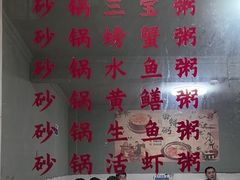 砂锅三宝粥
砂锅螃蟹粥
砂锅水鱼粥
砂锅黄鳝粥
砂锅生鱼粥
砂锅活虾粥